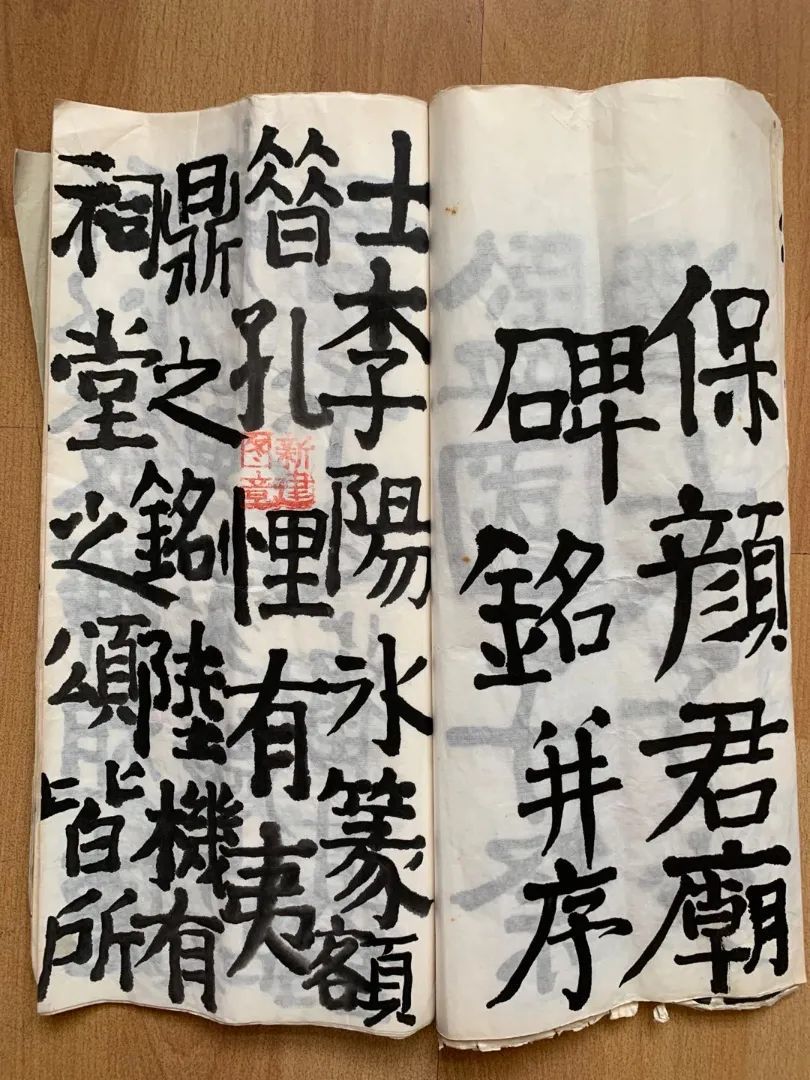 保顏君廟
碑銘并序
士李陽氷篆額
㫺孔悝有夷
鼎之銘陸機有
祠堂之頌皆所
新建
图章